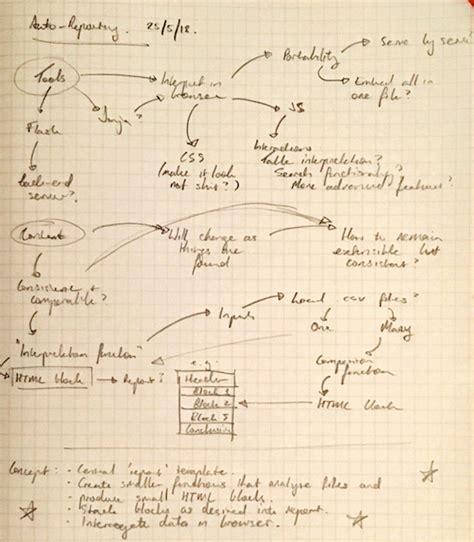 Auto-Reporting. 25/5/18.
Portability
Serve by
Tools
Interpret in
browser
Embed all in
one file?
Jinja?
JS
Flask
CSS
(make it look
not shit?)
Interactions
Table interpretation?
Search functionality?
More advanced features?
Backend
server?
Content
Will change as
things are
found
How to remain
extensible but
consistent?
Consistent &
comparable?
Inputs
Local .csv files?
One
Many
"Interpretation function"
Comparison
function
HTML block
Report?
e.g.
Header
Block 1
Block 2
Block 3
Conclusion
HTML block
Concept: - Central 'report' template.
- Create smaller functions that analyse files and
- produce small HTML blocks.
- Stack blocks as desired into report.
- Interrogate data in browser.